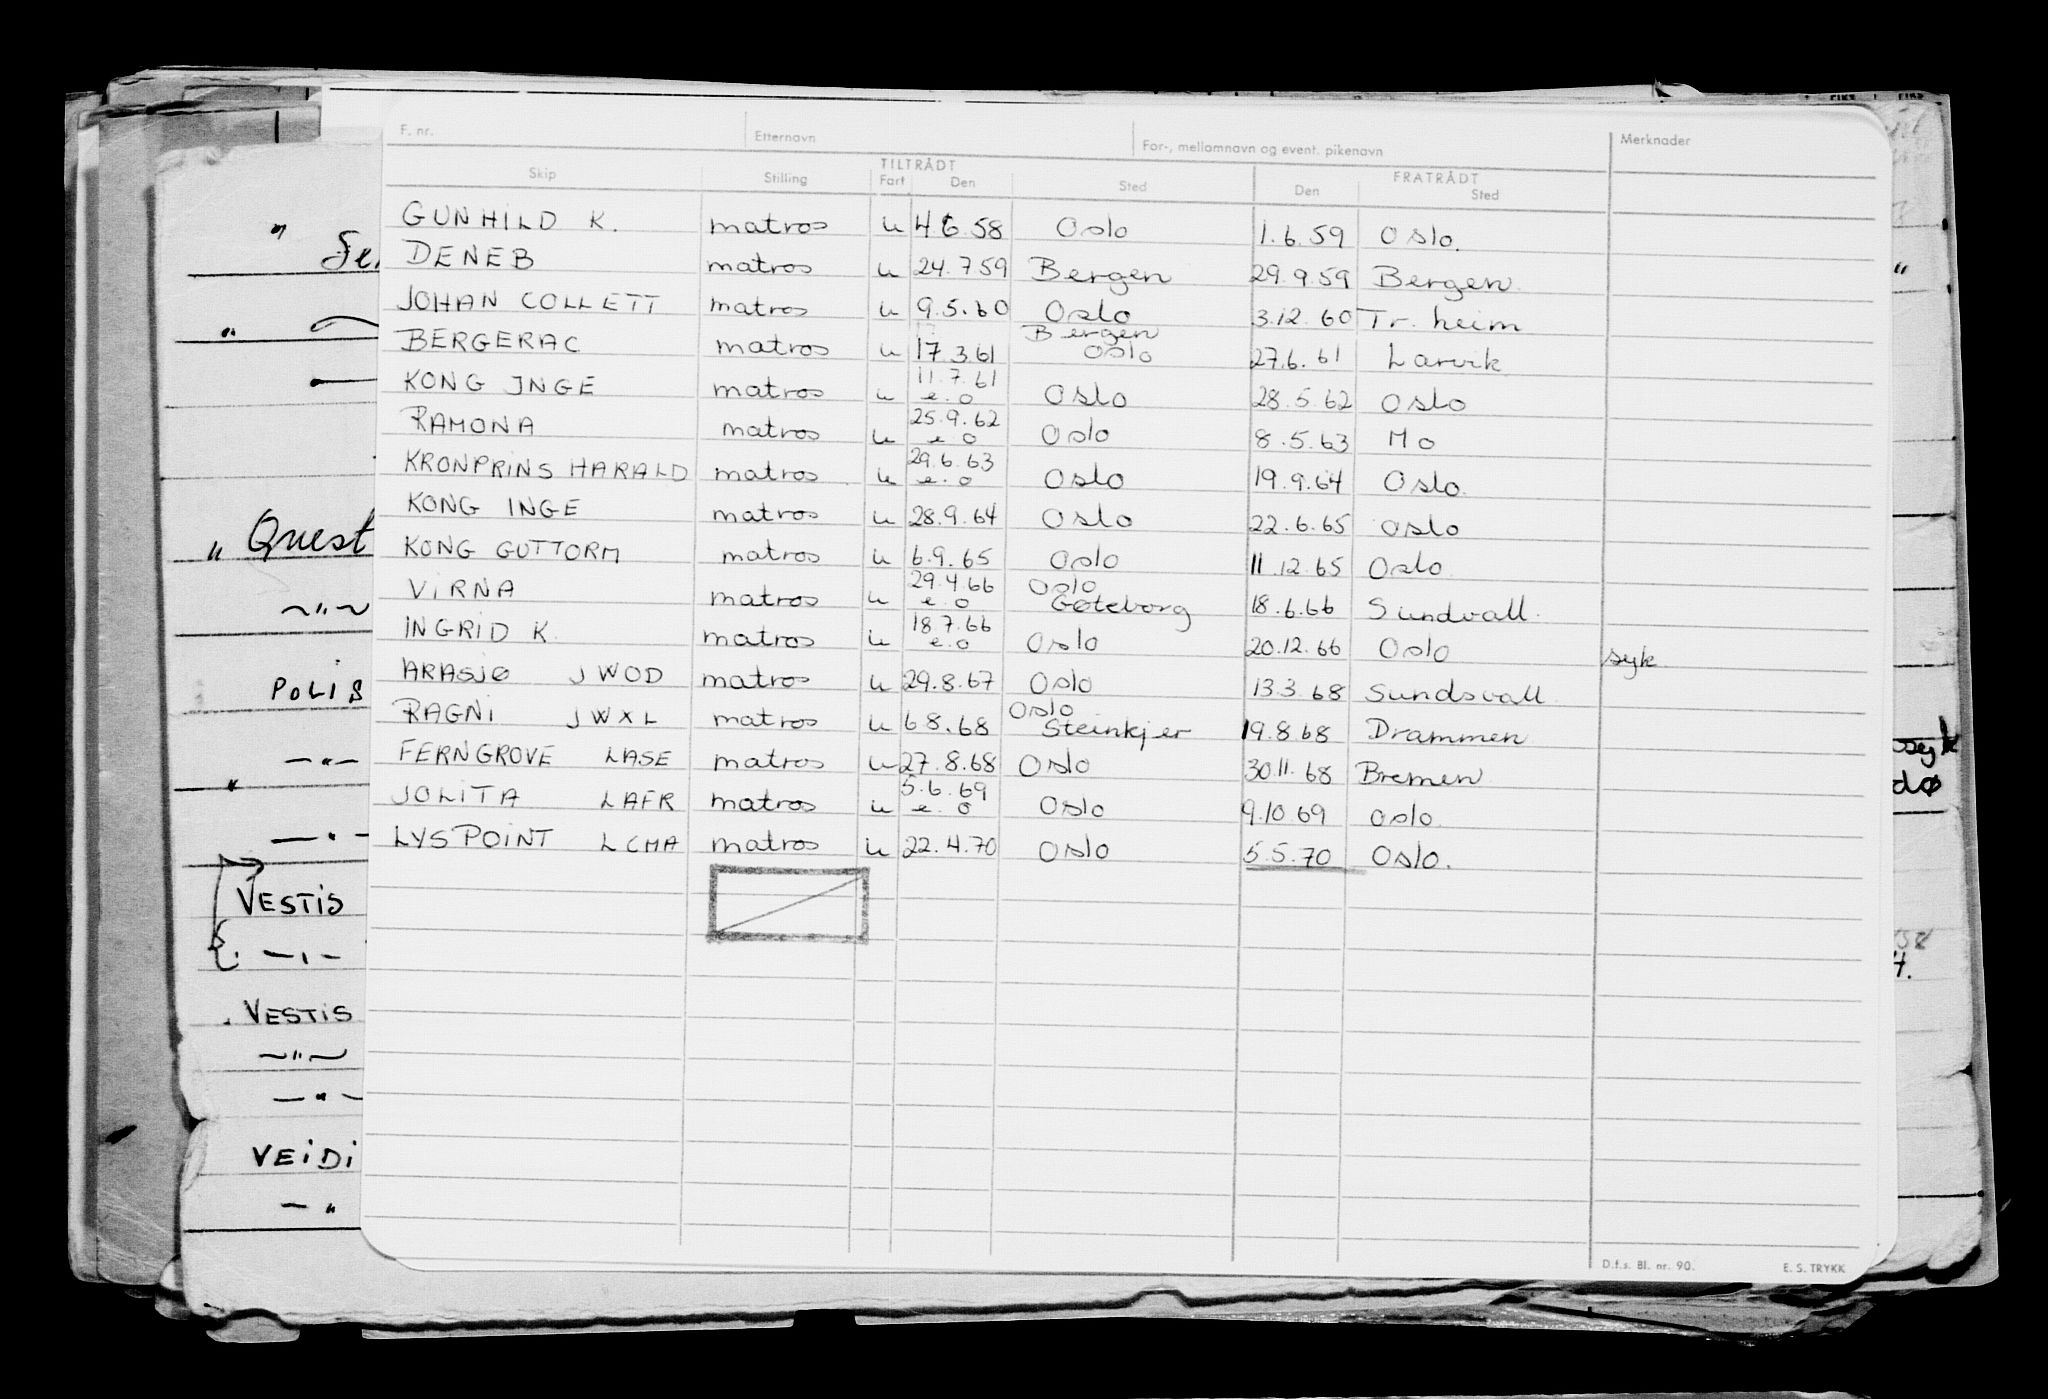 F. nr. Etternavn For-, mellomnavn og event. pikenavn Merknader
TILTRÅDT FRATRÅDT
Skip Stilling Fart Den Sted Den Sted
GUNHILD K. matros u 4.6.58 Oslo 1.6.59 Oslo.
DENEB matros u 24.7.59 Bergen 29.9.59 Bergen
JOHAN COLLETT matros u 9.5.60 Oslo 3.12.60 Tr.heim
BERGERAC matros u 17.3.61 Bergen Oslo 27.6.61 Larvik
KONG INGE matros u 11.7.61 e.o Oslo 28.5.62 Oslo
RAMONA matros u 25.9.62 e.o Oslo 8.5.63 Mo
KRONPRINS HARALD matros u 29.6.63 e.o Oslo 19.9.64 Oslo.
KONG INGE matros u 28.9.64 Oslo 22.6.65 Oslo
KONG GUTTORM matros u 6.9.65 Oslo 11.12.65 Oslo
VIRNA matros u 29.4.66 e.o Oslo Gøteborg 18.6.66 Sundvall.
INGRID K. matros u 18.7.66 e.o Oslo 20.12.66 Oslo syk
ARASJØ JWOD matros u 29.8.67 Oslo 13.3.68 Sundsvall
RAGNI JWXL matros u 6.8.68 Oslo Steinkjer 19.8.68 Drammen
FERNGROVE LASE matros u 27.8.68 Oslo 30.11.68 Bremen
JOLITA LAFR matros u 5.6.69 e.o Oslo 9.10.69 Oslo.
LYSPOINT LCMA matros u 22.4.70 Oslo 5.5.70 Oslo.
D.f.s. Bl. nr. 90. E. S. TRYKK
" 
"
" Quest
~"~
POLIS
—"—
syk
dø
VESTIS
VESTIS
~"~
—"—
VEIDI
—"